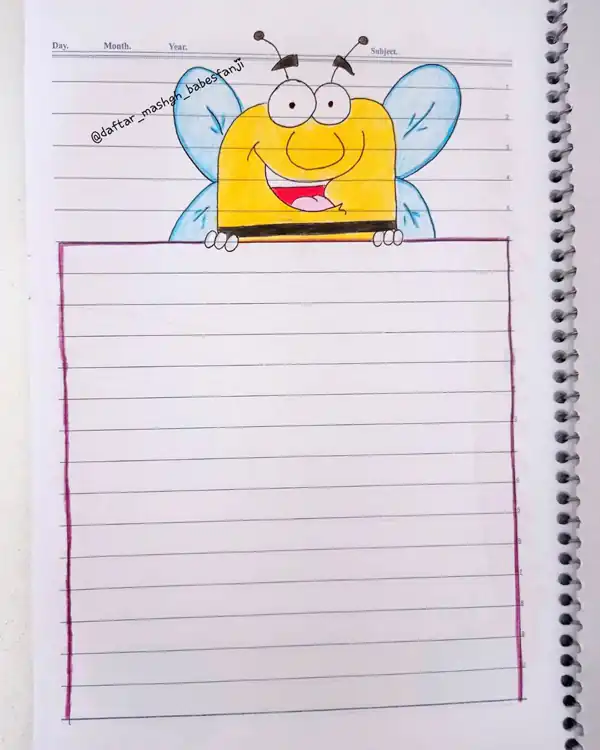 Day. Month. Year. Subject.
@daftar_mashgh_babesfanji
1
2
3
4
5